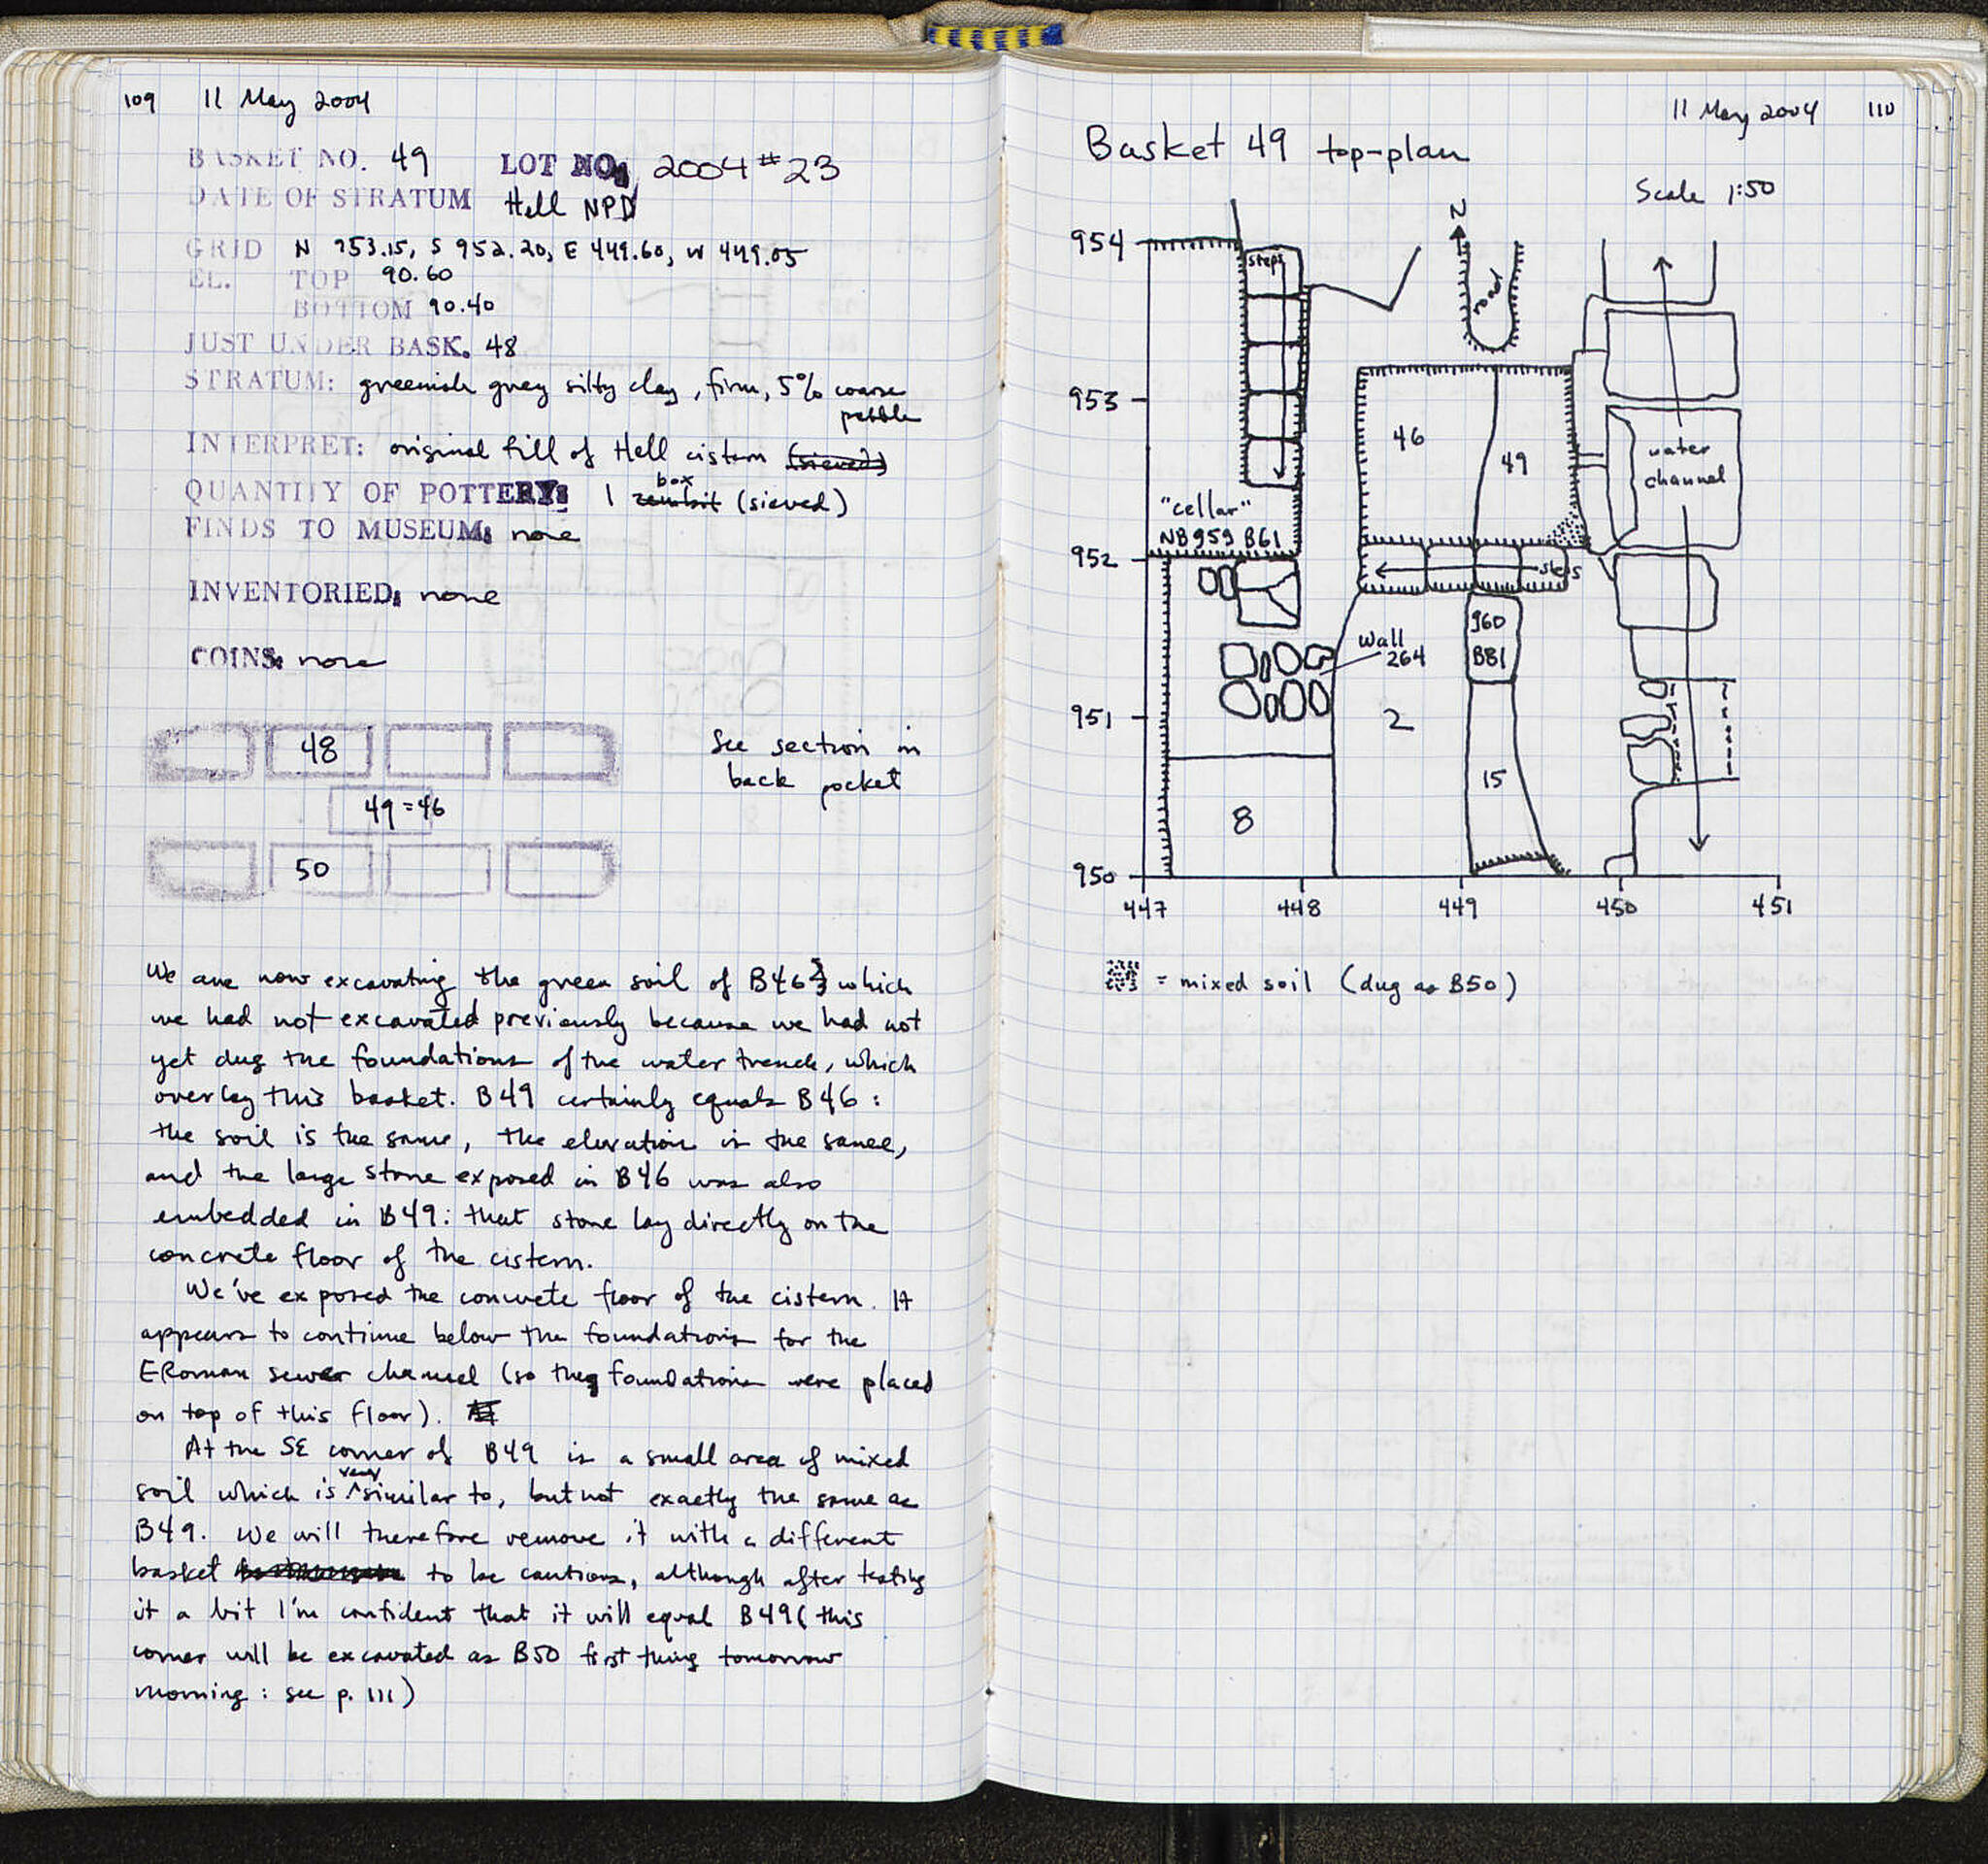 109 11 May 2004
BASKET NO. 49 LOT NO. 2004 #23
DATE OF STRATUM Hell NPD
GRID N 953.15, S 952.20, E 449.60, W 449.05
EL. TOP 90.60
BOTTOM 90.40
JUST UNDER BASK. 48
STRATUM: greenish grey silty clay, firm, 5% coarse
pebble
INTERPRET: original fill of Hell cistern (sieved)
box
QUANTITY OF POTTERY: 1 zembil (sieved)
FINDS TO MUSEUM: none
INVENTORIED: none
COINS: none
48
49 = 46
50
See section in
back pocket
We are now excavating the green soil of B46 which
we had not excavated previously because we had not
yet dug the foundations of the water trench, which
overlay this basket. B49 certainly equals B46:
the soil is the same, the elevation is the same,
and the large stone exposed in B46 was also
embedded in B49: that stone lay directly on the
concrete floor of the cistern.
We've exposed the concrete floor of the cistern. It
appears to continue below the foundations for the
ERoman sewer channel (so the foundations were placed
on top of this floor).
At the SE corner of B49 is a small area of mixed
very
soil which is ^ similar to, but not exactly the same as
B49. We will therefore remove it with a different
basket to be cautious, although after testing
it a bit I'm confident that it will equal B49 (this
corner will be excavated as B50 first thing tomorrow
morning: see p. 111)
11 May 2004 110
Basket 49 top-plan
Scale 1:50
N
954
953
952
951
950
447 448 449 450 451
steps
robot
46
49
water
channel
"cellar"
NB959 B61
steps
960
B81
Wall
264
2
15
8
= mixed soil (dug as B50)